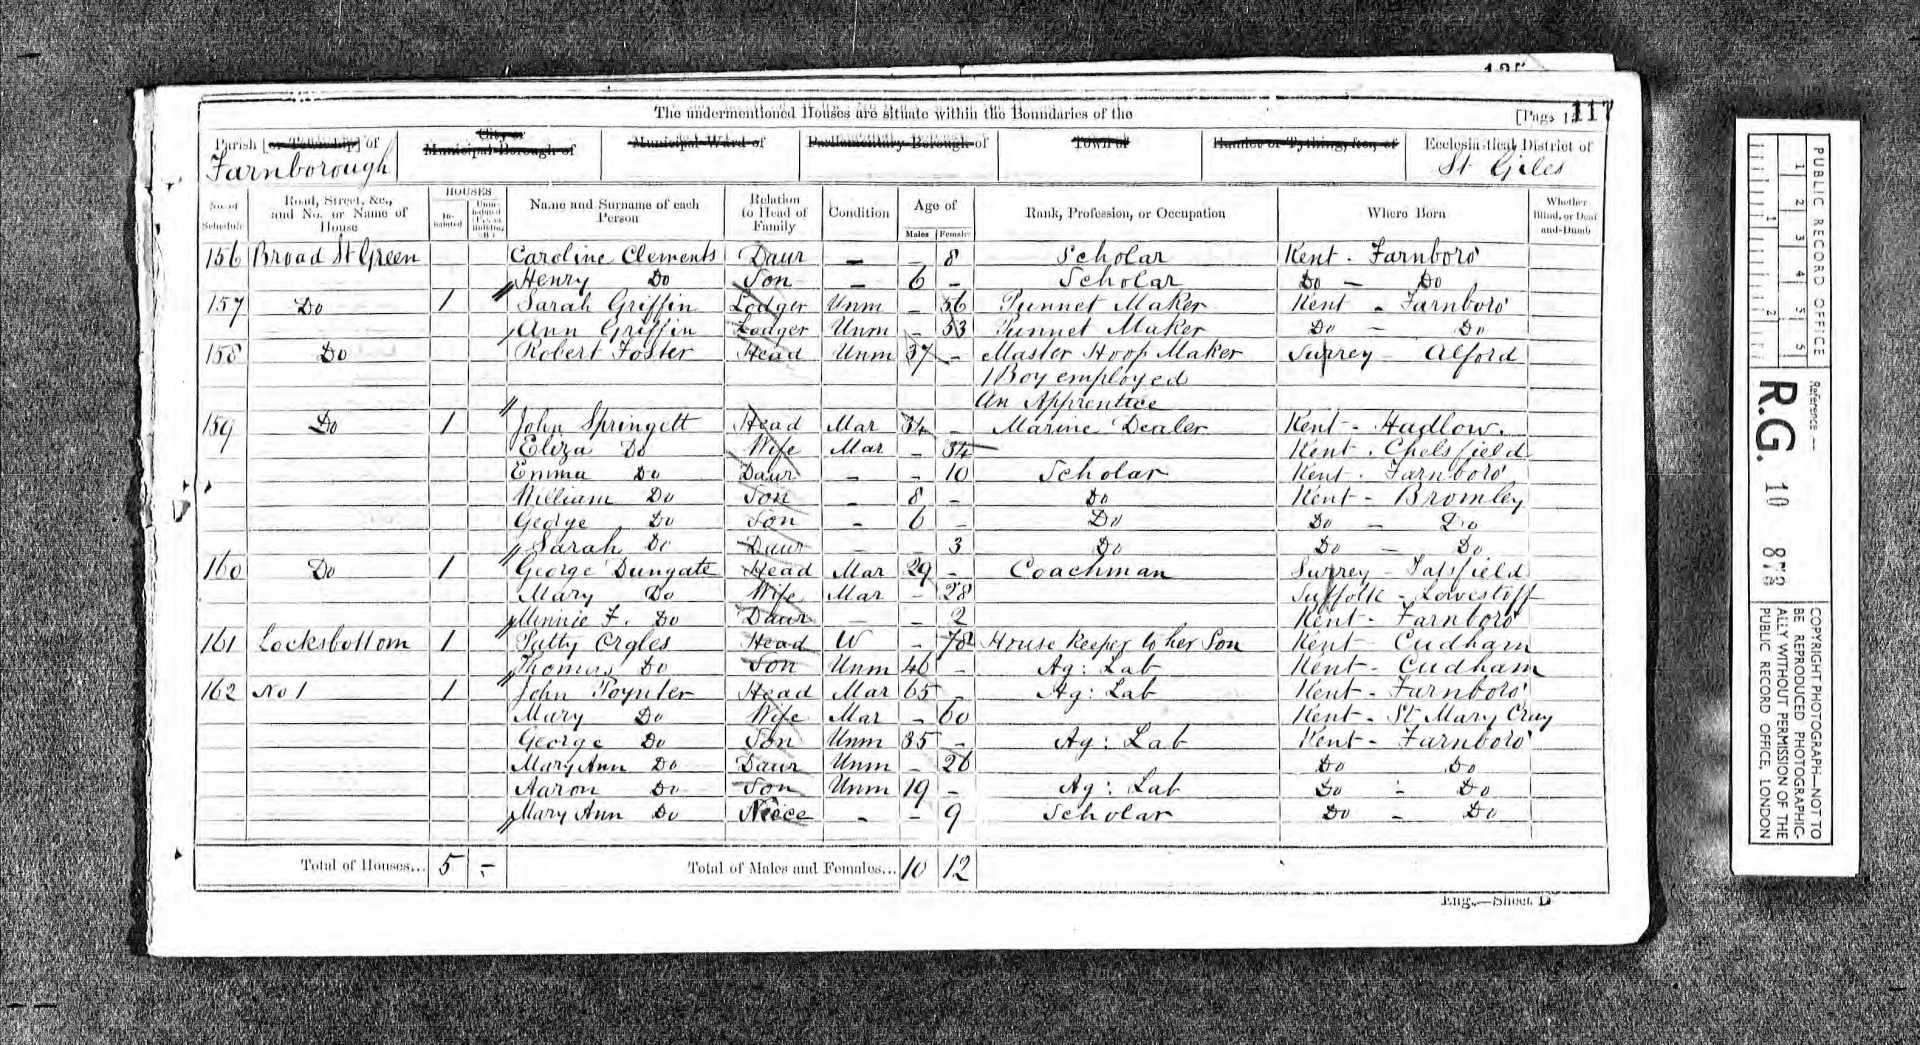 The undermentioned Houses are situate within the Boundaries of the
[Page 117
Parish [or Township] of
Farnborough
City or Municipal Borough of
Municipal Ward of
Parliamentary Borough of
Town of
Hamlet or Tything, &c., of
Ecclesiastical District of
St Giles
No. of Schedule
Road, Street, &c., and No. or Name of House
HOUSES
Inhabited
Uninhabited (U.), or Building (B.)
Name and Surname of each Person
Relation to Head of Family
Condition
Age of
Males
Females
Rank, Profession, or Occupation
Where Born
Whether Blind, or Deaf-and-Dumb
156 Broad St Green Caroline Clements Daur - - 8 Scholar Kent - Farnboro'
Henry Do Son - 6 - Scholar Do - Do
157 Do 1 Sarah Griffin Lodger Unm - 56 Punnet Maker Kent - Farnboro'
Ann Griffin Lodger Unm - 53 Punnet Maker Do - Do
158 Do Robert Foster Head Unm 37 - Master Hoop Maker Surrey - Alford
1 Boy employed
An Apprentice
159 Do 1 John Springett Head Mar 34 - Marine Dealer Kent - Hadlow.
Eliza Do Wife Mar - 34 Kent - Chelsfield
Emma Do Daur - - 10 Scholar Kent - Farnboro'
William Do Son - 8 - Do Kent - Bromley
George Do Son - 6 - Do Do - Do
Sarah Do Daur - - 3 Do Do - Do
160 Do 1 George Dungate Head Mar 29 - Coachman Surrey - Tatsfield
Mary Do Wife Mar - 28 Suffolk - Lowestiff
Minnie F. Do Daur - - 2 Kent - Farnboro'
161 Locksbottom 1 Patty Orgles Head W - 78 House keeper to her Son Kent - Cudham
Thomas Do Son Unm 46 - Ag: Lab Kent - Cudham
162 No 1 1 John Poynter Head Mar 65 - Ag: Lab Kent - Farnboro'
Mary Do Wife Mar - 60 Kent - St Mary Cray
George Do Son Unm 35 - Ag: Lab Kent - Farnboro'
Mary Ann Do Daur Unm - 26 Do Do
Aaron Do Son Unm 19 - Ag: Lab Do - Do
Mary Ann Do Niece - - 9 Scholar Do - Do
Total of Houses... 5 - Total of Males and Females... 10 12
Eng.—Sheet D
PUBLIC RECORD OFFICE
1 2 3 4 5
1 2
Reference :—
R.G. 10 873
COPYRIGHT PHOTOGRAPH—NOT TO
BE REPRODUCED PHOTOGRAPHIC-
ALLY WITHOUT PERMISSION OF THE
PUBLIC RECORD OFFICE, LONDON